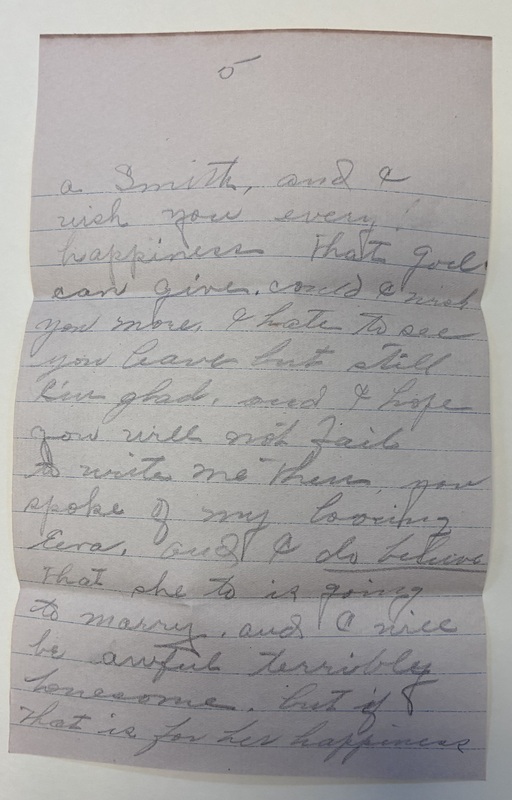 5
a Smith, and I
wish you every
happiness that God
can give. could I wish
you more, I hate to see
you leave but still
I'm glad. and I hope
you will not fail
to write me then, you
spoke of my loosing
Eva. and I do believe
that she to is going
to marry, and I will
be awful terribly
lonesome. but if
that is for her happiness